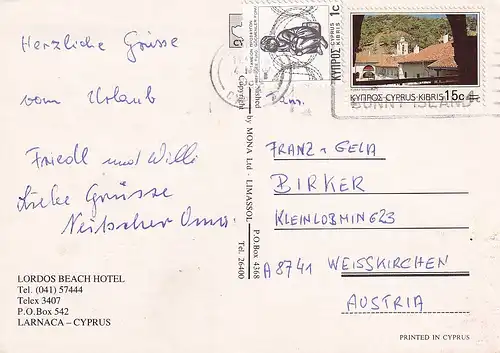 Herzliche Grüsse
vom Urlaub
Friedl und Willi
Liebe Grüsse
Neitscher Oma.
LORDOS BEACH HOTEL
Tel. (041) 57444
Telex 3407
P.O.Box 542
LARNACA – CYPRUS
Copyright
by MONA Ltd - LIMASSOL
P.O.Box 4368
Tel. 26400
1c
ΚΥΠΡΟΣ
KIBRIS
ΚΥΠΡΟΣ CYPRUS·KIBRIS 15c
SUNNY ISLAND
FRANZ + GELA
BIRKER
KLEINLOBMING 23
A 8741 WEISSKIRCHEN
AUSTRIA
PRINTED IN CYPRUS